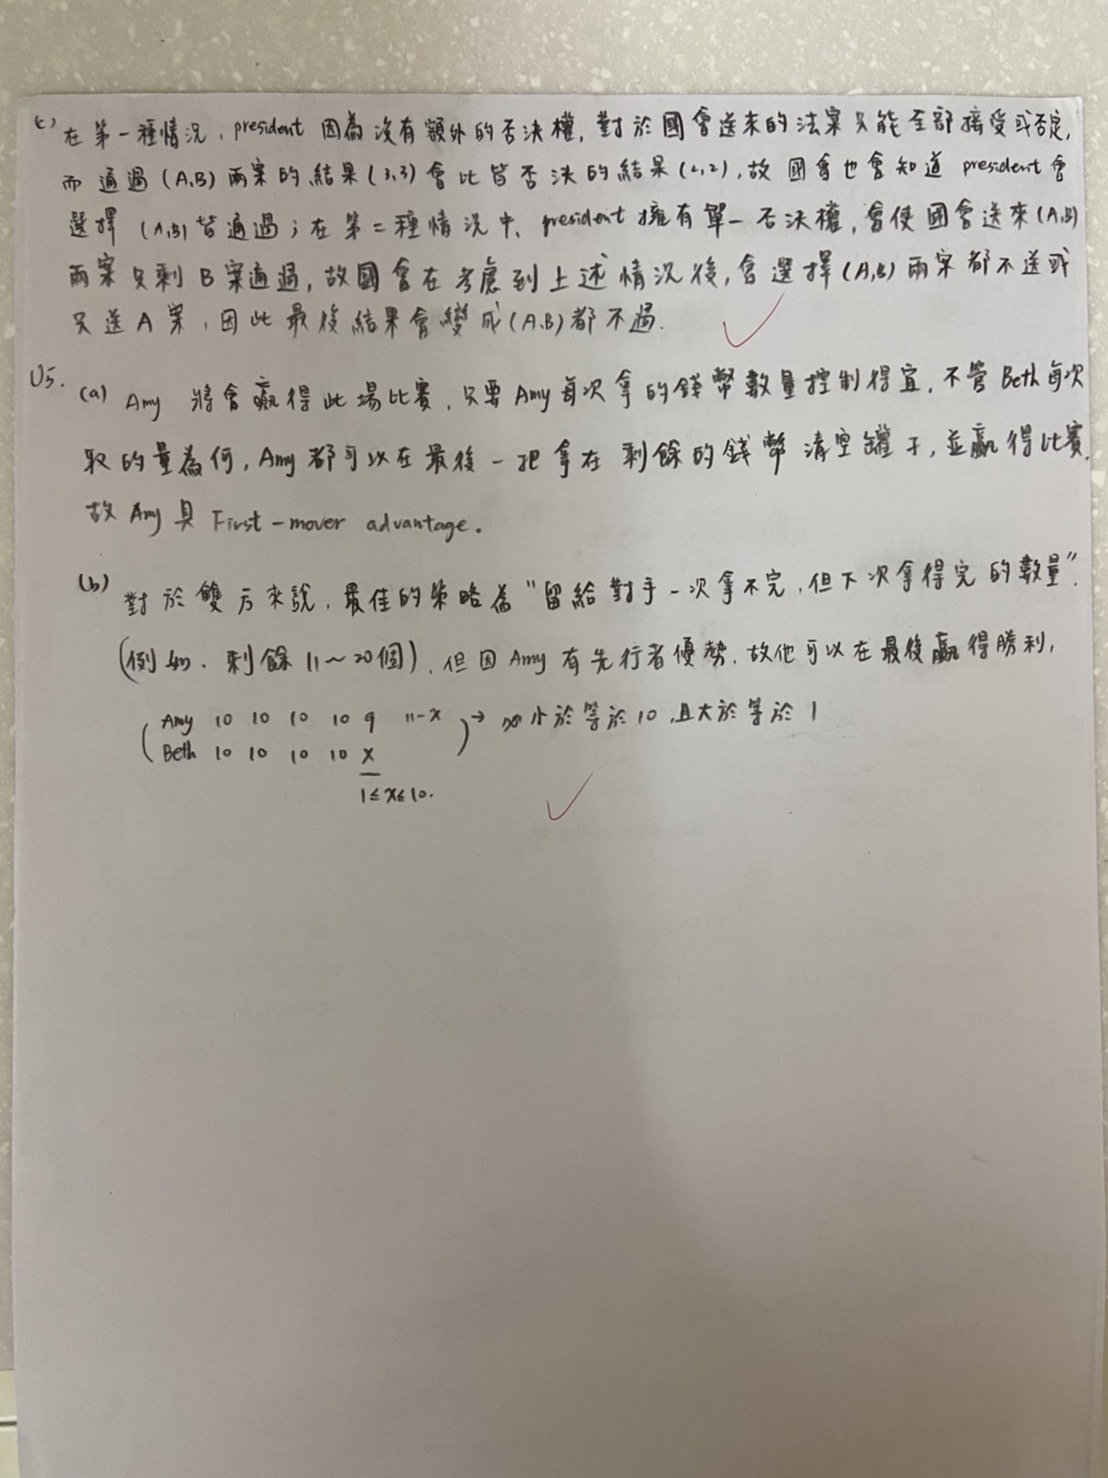 c) 在第一種情況，president 因為沒有額外的否決權，對於國會送來的法案只能全部接受或否定，
而通過 (A,B) 兩案的結果 (3,3) 會比皆否決的結果 (2,2)，故國會也會知道 president 會
選擇 (A,B) 皆通過；在第二種情況中，president 擁有單一否決權，會使國會送來 (A,B)
兩案只剩 B 案通過，故國會在考慮到上述情況後，會選擇 (A,B) 兩案都不送或
只送 A 案，因此最後結果會變成 (A,B) 都不過.
U5. (a) Amy 將會贏得此場比賽，只要 Amy 每次拿的錢幣數量控制得宜，不管 Beth 每次
取的量為何，Amy 都可以在最後一把拿在剩餘的錢幣清空罐子，並贏得比賽，
故 Amy 具 First-mover advantage.
(b) 對於雙方來說，最佳的策略為"留給對手一次拿不完，但下次拿得完的數量".
(例如. 剩餘 11～20個)，但因 Amy 有先行者優勢，故他可以在最後贏得勝利，
(Amy 10 10 10 10 9 11-x
Beth 10 10 10 10 x) → 小於等於 10，且大於等於 1
1≤x≤10.